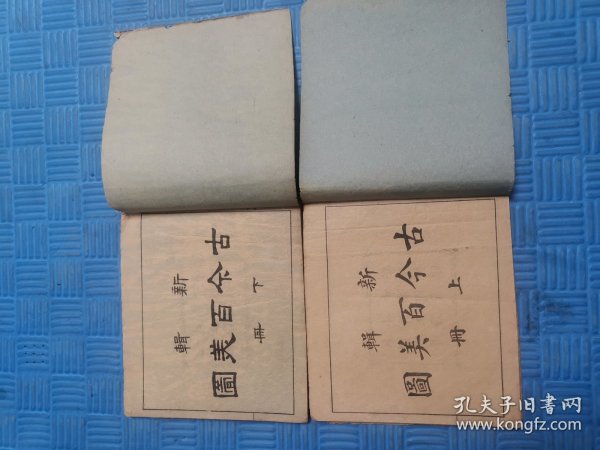 上冊
古今百美圖
新輯
下冊
古今百美圖
新輯
孔夫子旧書网
www.kongfz.com